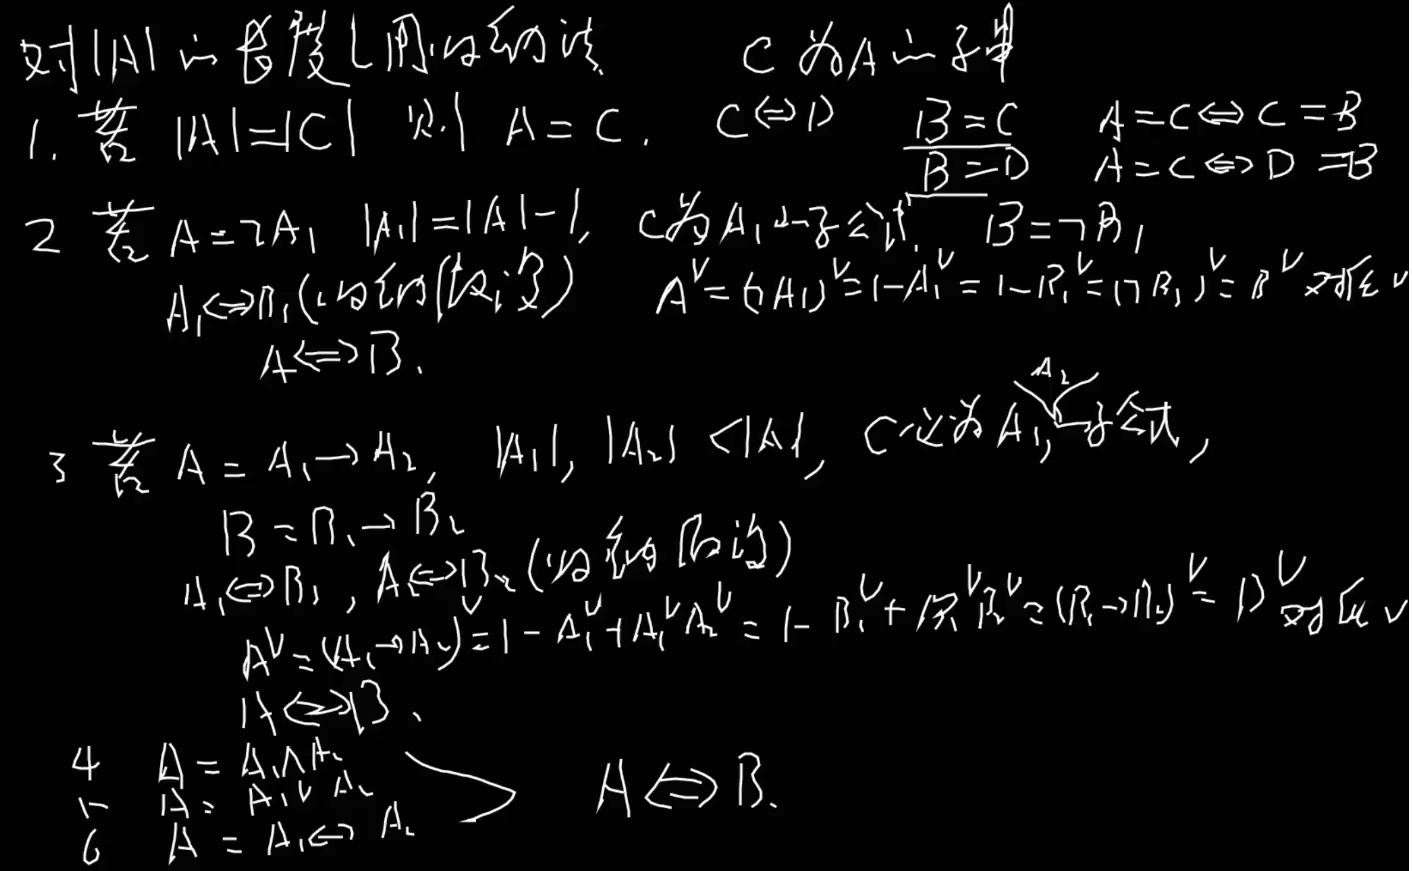 对|A|的长度l用归纳法 C为A的子串
1. 若 |A|=|C| 则 A=C. C⇔D B=C A=C⇔C=B
B=D A=C⇔D=B
2 若 A=¬A₁ |A₁|=|A|-1, C为A₁的子公式. B=¬B₁
A₁⇔B₁(归纳假设) Aᵛ=(¬A₁)ᵛ=1-A₁ᵛ=1-B₁ᵛ=(¬B₁)ᵛ=Bᵛ 对任v
A⇔B.
3 若 A=A₁→A₂, |A₁|, |A₂|<|A|, C必为A₁,A₂的子公式,
B=B₁→B₂
A₁⇔B₁, A₂⇔B₂(归纳假设)
Aᵛ=(A₁→A₂)ᵛ=1-A₁ᵛ+A₁ᵛA₂ᵛ=1-B₁ᵛ+B₁ᵛB₂ᵛ=(B₁→B₂)ᵛ=Bᵛ 对任v
A⇔B.
4 A=A₁∧A₂
5 A=A₁∨A₂ A⇔B.
6 A=A₁↔A₂